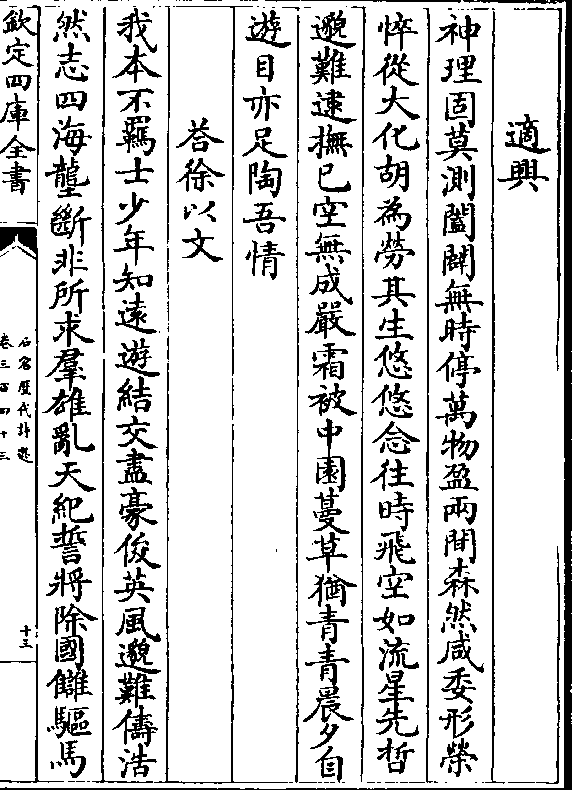 適興
神理固莫測闔闢無時停萬物盈兩間森然咸委形榮
悴從大化胡為勞其生悠悠念往時飛空如流星先哲
邈難逮撫已空無成嚴霜被中園蔓草猶青青晨夕自
遊目亦足陶吾情
荅徐以文
我本不羈士少年知遠遊結交盡豪俊英風邈難儔浩
然志四海壟斷非所求羣雄亂天紀誓將除國讎驅馬
欽定四庫全書
石倉歷代詩選
卷三百四十三
十三